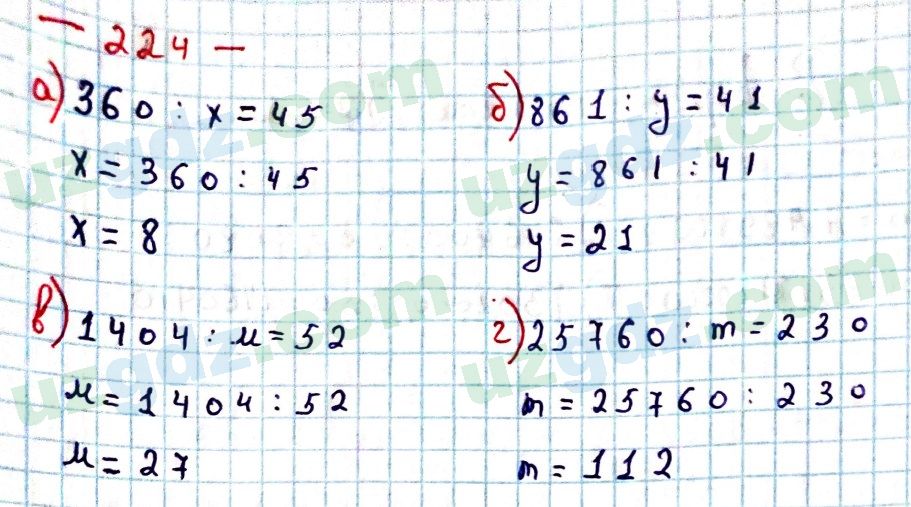 — 224 —
а) 360 : x = 45
x = 360 : 45
x = 8
б) 861 : y = 41
y = 861 : 41
y = 21
в) 1404 : и = 52
и = 1404 : 52
и = 27
г) 25760 : m = 230
m = 25760 : 230
m = 112
uzgdz.com
uzgdz.com
uzgdz.com
uzgdz.com